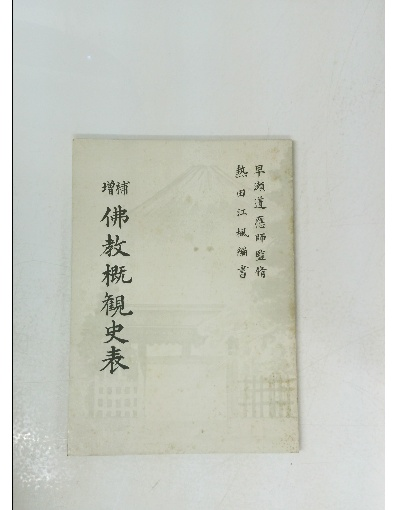 早瀬道應師監脩
熱田江楓編書
増補
佛教概観史表